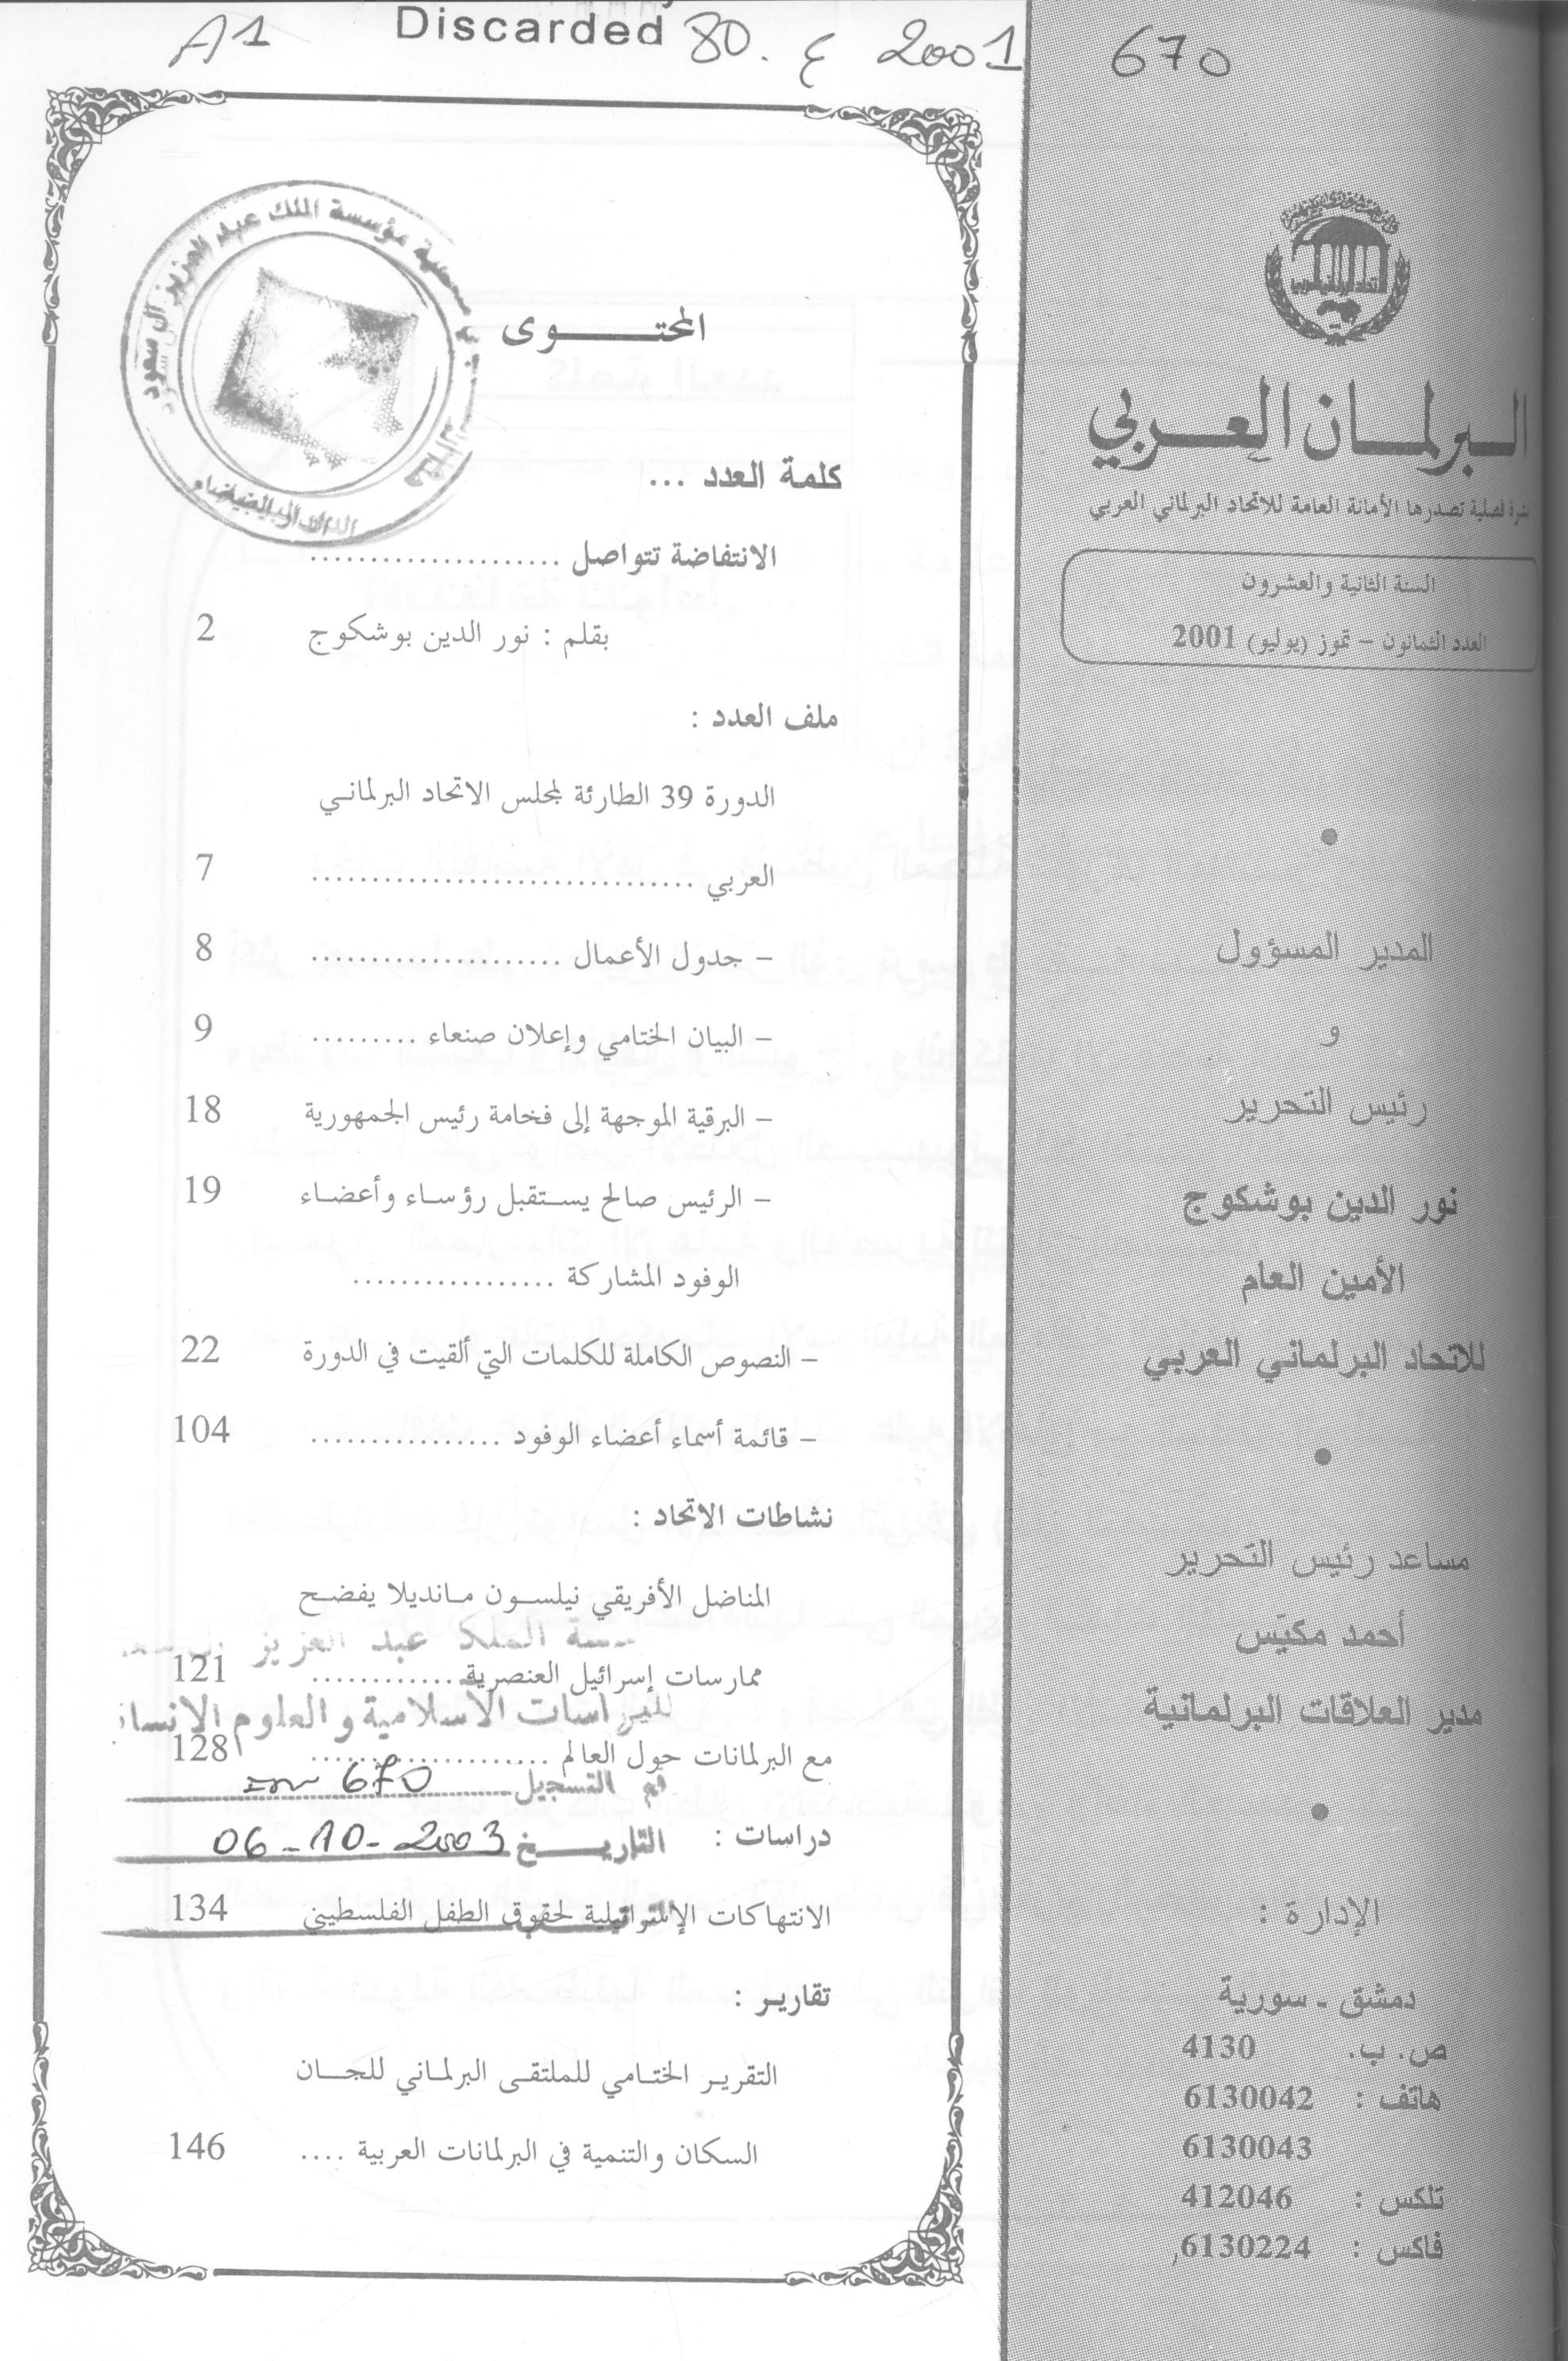 A1 Discarded 80. ع 2001 670
البرلمان العربي
نشرة فصلية تصدرها الأمانة العامة للاتحاد البرلماني العربي
السنة الثانية والعشرون
العدد الثمانون – تموز (يوليو) 2001
المدير المسؤول
و
رئيس التحرير
نور الدين بوشكوج
الأمين العام
للاتحاد البرلماني العربي
مساعد رئيس التحرير
أحمد مكيّس
مدير العلاقات البرلمانية
الإدارة :
دمشق ـ سورية
ص. ب. 4130
هاتف : 6130042
6130043
تلكس : 412046
فاكس : 6130224
المحتـــــوى
مؤسسة الملك عبد العزيز آل سعود
الدار البيضاء
كلمة العدد ...
الانتفاضة تتواصل .....................
بقلم : نور الدين بوشكوج 2
ملف العدد :
الدورة 39 الطارئة لمجلس الاتحاد البرلماني
العربي ................................ 7
– جدول الأعمال ..................... 8
– البيان الختامي وإعلان صنعاء ......... 9
– البرقية الموجهة إلى فخامة رئيس الجمهورية 18
– الرئيس صالح يستقبل رؤساء وأعضاء 19
الوفود المشاركة .................
– النصوص الكاملة للكلمات التي ألقيت في الدورة 22
– قائمة أسماء أعضاء الوفود ................ 104
نشاطات الاتحاد :
المناضل الأفريقي نيلسون مانديلا يفضح
الملك عبد العزيز
ممارسات إسرائيل العنصرية ............. 121
للدراسات الأسلامية والعلوم الانسا
مع البرلمانات حول العالم .................... 128
تم التسجيل 670
دراسات :
التاريـــخ 06-10-2003
الانتهاكات الإسرائيلية لحقوق الطفل الفلسطيني 134
تقارير :
التقرير الختامي للملتقى البرلماني للجان
السكان والتنمية في البرلمانات العربية .... 146